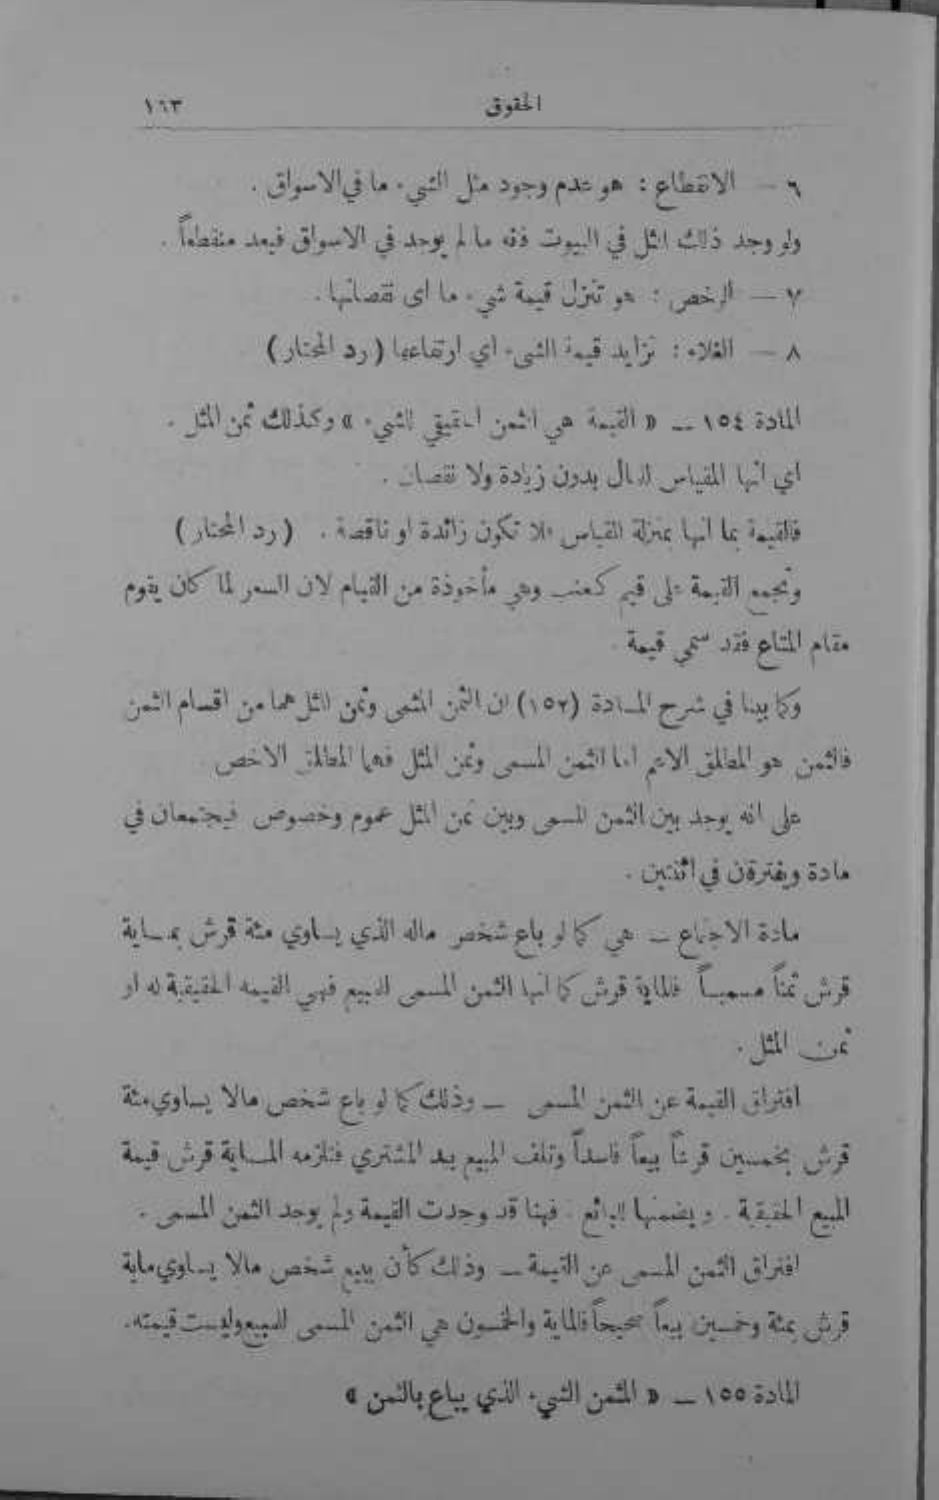 الحقوق ١٦٣
٦ — الانقطاع : هو عدم وجود مثل الشيء ما في الاسواق .
ولو وجد ذلك المثل في البيوت فانه ما لم يوجد في الاسواق فيعد منقطعاً .
٧ — الرخص : هو تنزل قيمة شيء ما اى نقصانها .
٨ — الغلاء : تزايد قيمة الشيء اي ارتفاعها ( رد المحتار )
المادة ١٥٤ — « القيمة هي الثمن الحقيقي للشيء » وكذلك ثمن المثل .
اي انها المقياس للمال بدون زيادة ولا نقصان .
فالقيمة بما انها بمنزلة المقياس فلا تكون زائدة او ناقصة . ( رد المحتار )
وتجمع القيمة على قيم كعنب وهي مأخوذة من القيام لان السعر لما كان يقوم
مقام المتاع فقد سمي قيمة .
وكما بينا في شرح المادة (١٥٢) ان الثمن المسمى وثمن المثل هما من اقسام الثمن
فالثمن هو المطلق الاعم اما الثمن المسمى وثمن المثل فهما المطلق الاخص
على انه يوجد بين الثمن المسمى وبين ثمن المثل عموم وخصوص فيجتمعان في
مادة ويفترقان في اثنتين .
مادة الاجتماع — هي كما لو باع شخص ماله الذي يساوي مئة قرش بماية
قرش ثمناً مسمياً فالماية قرش كما انها الثمن المسمى للمبيع فهي القيمه الحقيقية له او
ثمن المثل .
افتراق القيمة عن الثمن المسمى — وذلك كما لو باع شخص مالا يساوي مئة
قرش بخمسين قرشاً بيعاً فاسداً وتلف المبيع بيد المشتري فتلزمه الماية قرش قيمة
المبيع الحقيقية . ويضمنها للبائع . فهنا قد وجدت القيمة ولم يوجد الثمن المسمى .
افتراق الثمن المسمى عن القيمة — وذلك كأن يبيع شخص مالا يساوي ماية
قرش بمئة وخمسين بيعاً صحيحاً فالماية والخمسون هي الثمن المسمى للمبيع وليست قيمته .
المادة ١٥٥ — « المثمن الشيء الذي يباع بالثمن »